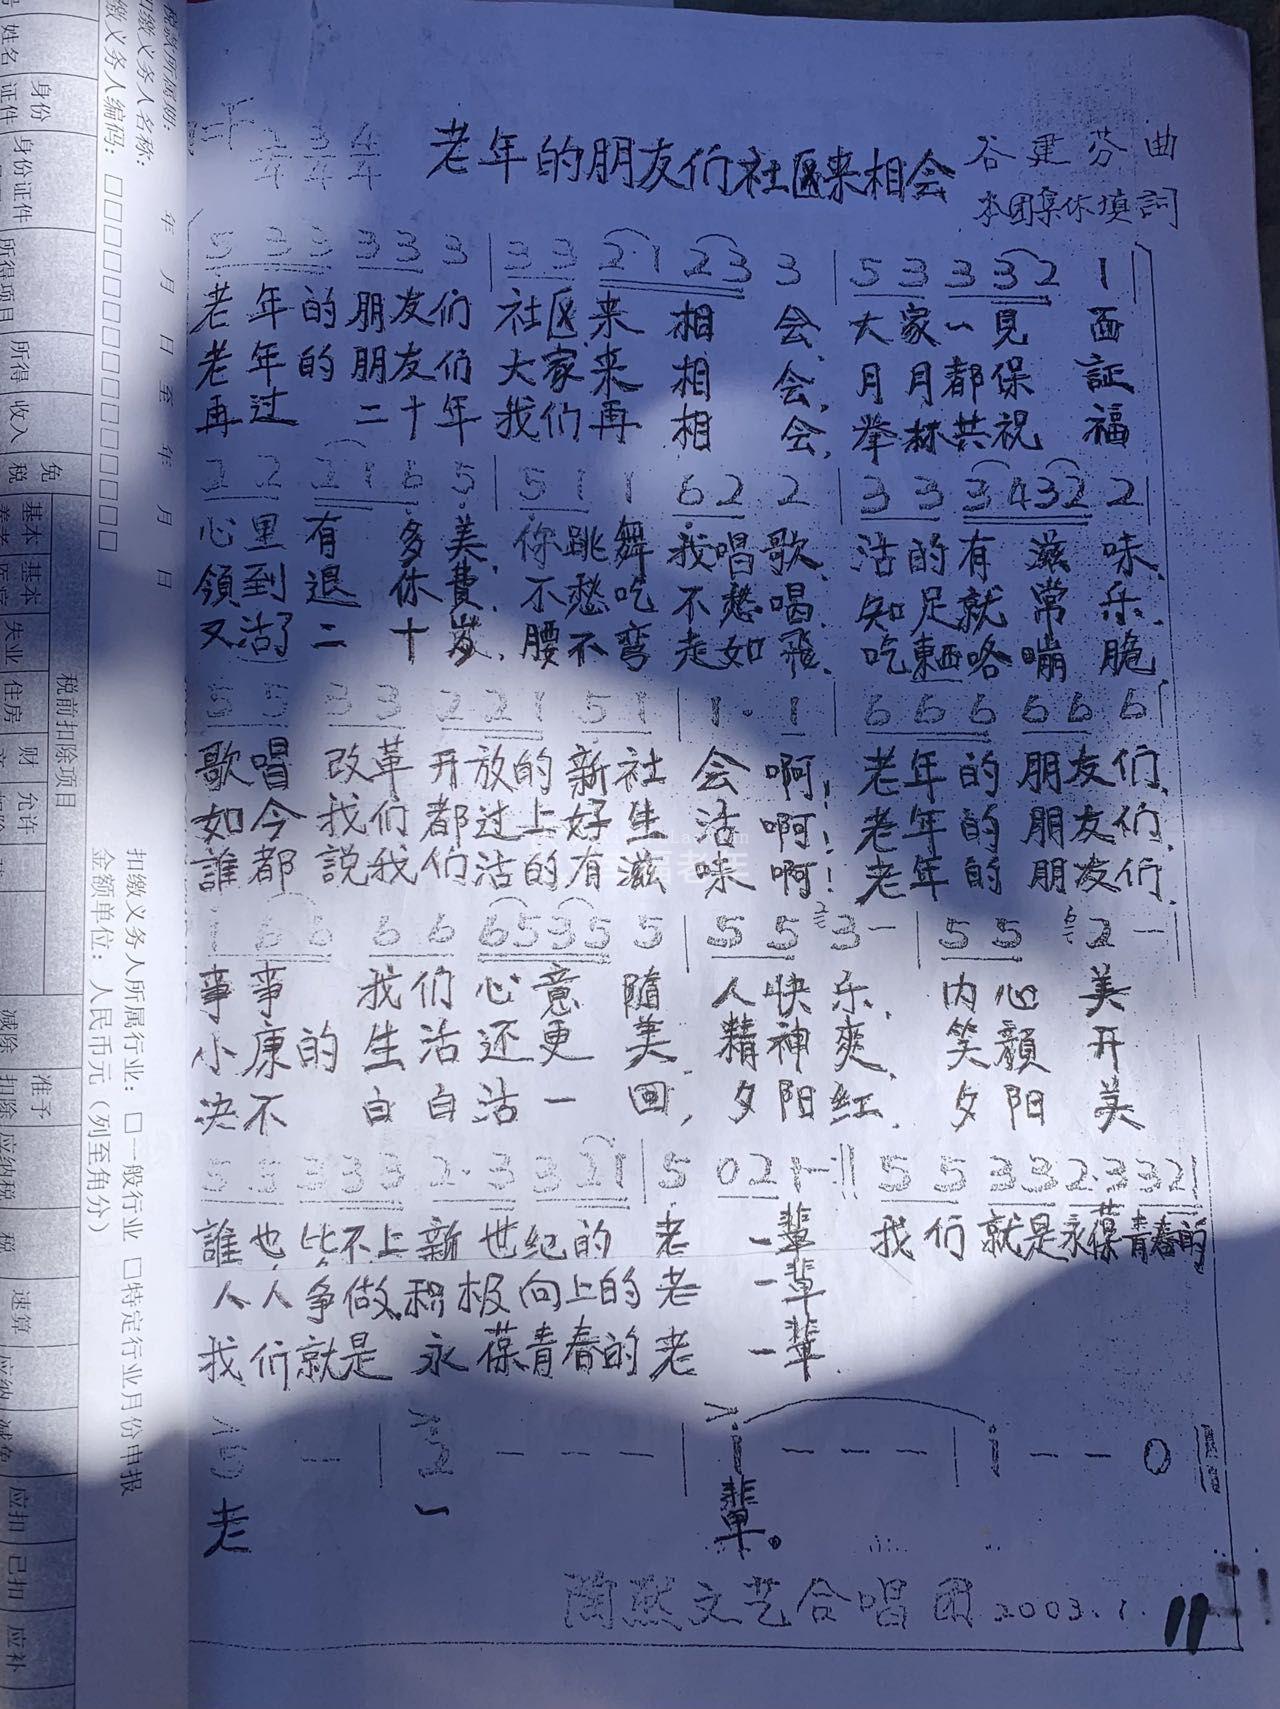 老年的朋友们社区来相会
谷建芬曲
本团集体填詞
5 3 3 3 3 3 | 3 3 2·1 2 3 3 | 5 3 3 3 2 1 |
老年的朋友们 社区来相会 大家一見面
老年的朋友们 大家来相会 月月都保証
再过二十年 我们再相会 举杯共祝福
2 2 2 1 6 5 5 1 1 6 2 2 | 3 3 3 4 3 2 2 |
心里有多美 你跳舞我唱歌 活的有滋味
領到退休費 不愁吃不愁喝 知足就常乐
又活了二十岁 腰不弯走如飛 吃東西咯嘣脆
5 3 3 3 2 2 1 5 1 | 1· 1 6 6 6 6 6 6 |
歌唱改革开放的新社会啊！老年的朋友们
如今我们都过上好生活啊！老年的朋友们
誰都說我们活的有滋味啊！老年的朋友们
1 6 6 6 6 6 5 3 5 5 | 5 5 3 - | 5 5 2 -
事事我们心意随 人快乐 内心美
小康的生活还更美 精神爽 笑顏开
决不白白活一回 夕阳红 夕阳美
5 5 3 3 3 2· 3 3 2 1 | 5 0 2 1 - :|| 5 5 3 3 2·3 3 2 1
誰也比不上新世纪的老一輩 我们就是永葆青春的
人人争做积极向上的老一輩
我们就是永葆青春的老一輩
5 - | 2 - - - | i - - - | i - - 0 ||
老 一 輩。
文艺合唱团 2003.1.
11
税款所属期: 年 月 日 至 年 月 日
扣缴义务人名称:
扣缴义务人编码: □□□□□□□□□□□□□□□□□□
扣缴义务人所属行业: □一般行业 □特定行业月份申报
金额单位: 人民币元（列至角分）
姓名
身份证件
身份证件
所得项目
所得
收入
免税
税前扣除项目
基本
基本
失业
住房
财
允许
减除
准予扣除
应纳税
税
速算
应纳
减免
应扣
已扣
应补